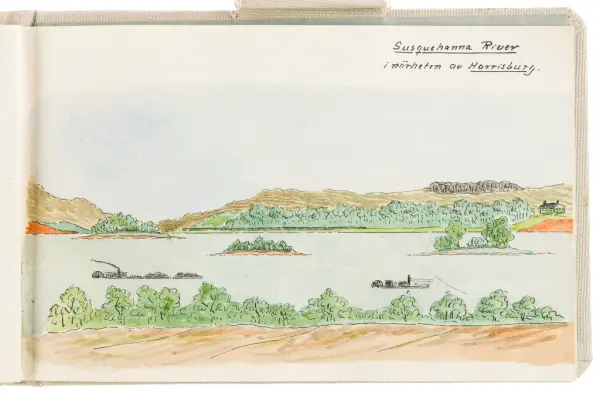 Susquehanna River
i närheten av Harrisburg.